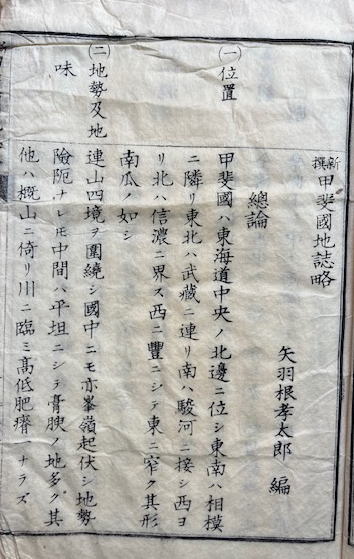 新撰甲斐國地誌略
矢羽根孝太郎 編
總論
㊀位置
甲斐國ハ東海道中央ノ北邊ニ位シ東南ハ相模
ニ隣リ東北ハ武藏ニ連リ南ハ駿河ニ接シ西ヨ
リ北ハ信濃ニ界ス西ニ豐ニシテ東ニ窄ク其形
南瓜ノ如シ
㊁地勢及地
味
連山四境ヲ圍繞シ國中ニモ亦峯嶺起伏シ地勢
險阨ナレ𪜈中間ハ平坦ニシテ膏腴ノ地多ク其
他ハ概山ニ倚リ川ニ臨ミ高低肥瘠 ナラズ